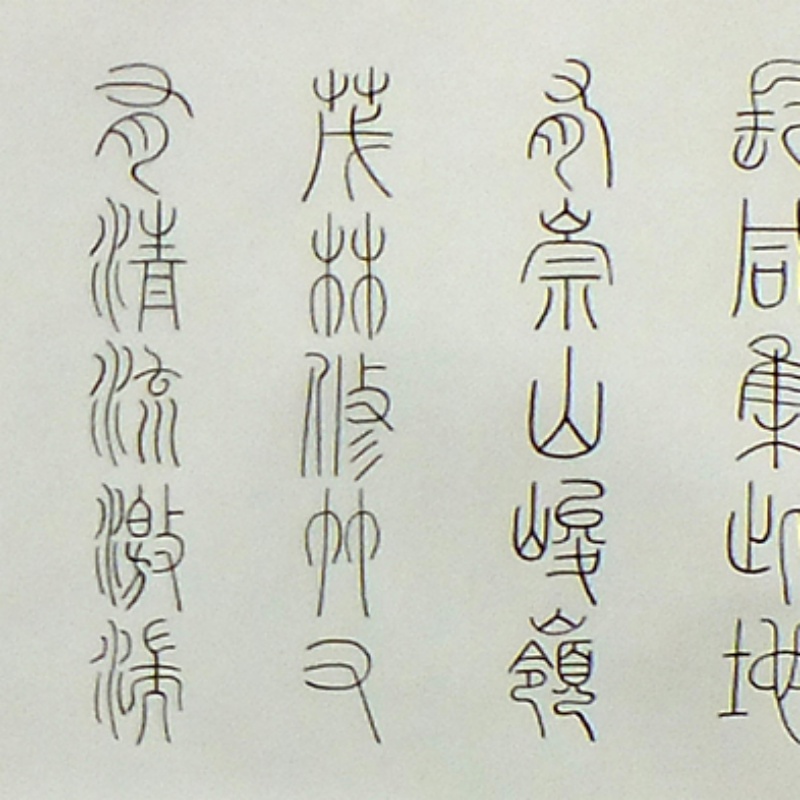 長咸集此地
有崇山峻嶺
茂林修竹又
有清流激湍